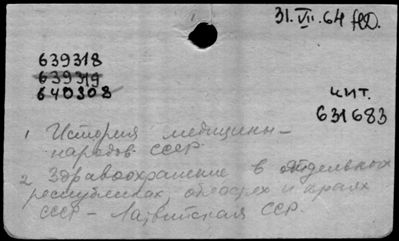 31.VII.64
639318
639319
640308
чит.
631683
1 История медицины -
народов СССР
2 Здравоохранение в отдельных
республиках, областях и краях
СССР - Латвийская ССР.